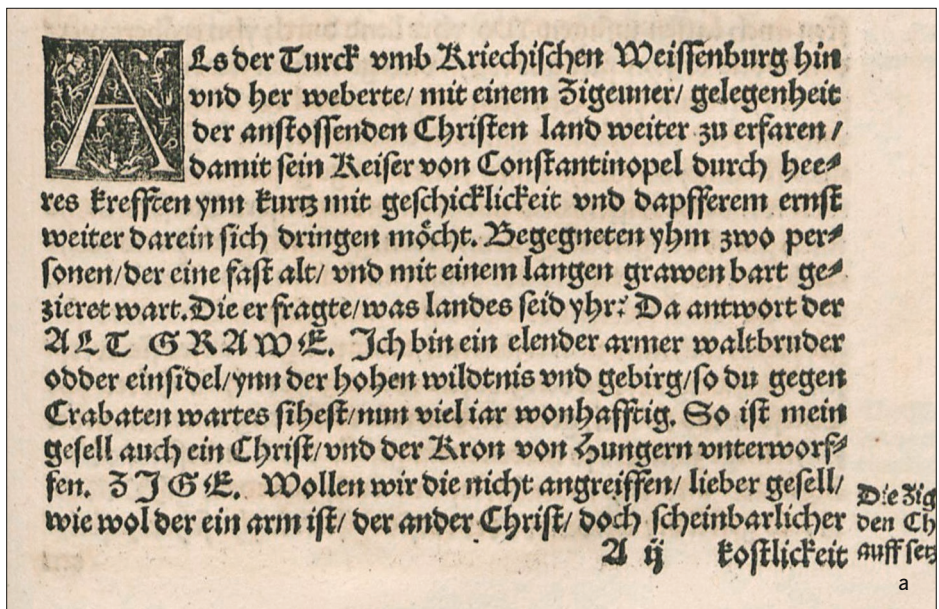 ALs der Turck vmb Kriechischen Weissenburg hin
vnd her weberte/ mit einem Zigeuner/ gelegenheit
der anstossenden Christen land weiter zu erfaren/
damit sein Keiser von Constantinopel durch hee⸗
res krefften ynn kurtz mit geschicklickeit vnd dapfferem ernst
weiter darein sich dringen möcht. Begegneten yhm zwo per⸗
sonen/der eine fast alt/ vnd mit einem langen grawen bart ge⸗
zieret wart. Die er fragte/was landes seid yhr? Da antwort der
ALT GRAWE. Ich bin ein elender armer waltbruder
odder einsidel/ynn der hohen wildtnis vnd gebirg/so du gegen
Crabaten wartes sihest/nun viel iar wonhafftig. So ist mein
gesell auch ein Christ/vnd der Kron von Hungern vnterworf⸗
fen. ZIGE. Wollen wir die nicht angreiffen/ lieber gesell/
wie wol der ein arm ist/ der ander Christ/ doch scheinbarlicher
A ij kostlickeit
Die Zig
den Ch
auff setz
a